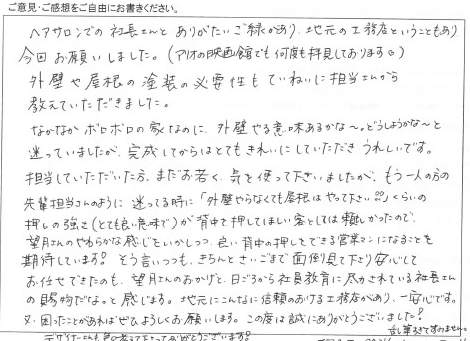 ご意見・ご感想をご自由にお書きください。
ヘアサロンでの社長さんとありがたいご縁があり、地元の工務店ということもあり
今回お願いしました。(アリオの映画館でも何度も拝見しております☺)
外壁や屋根の塗装の必要性もていねいに担当さんから
教えていただきました。
なかなかボロボロの家なのに、外壁やる意味あるかな〜。どうしようかな〜と
迷っていましたが、完成してからはとてもきれいにしていただきうれしいです。
担当していただいた方、まだお若く、気を使って下さいましたが、もう一人の方の
先輩担当さんのように迷ってる時に「外壁やらなくても屋根はやって下さい!!」くらいの
押しの強さ(とても良い意味で)が背中を押してほしい客としては頼もしかったので、
望月さんのやわらかな感じをいかしつつ、良い背中の押しをできる営業マンになることを
期待しています! そう言いつつも、きちんとさいごまで面倒見て下さり安心して
お任せできたのも、望月さんのおかげと、日ごろから社員教育に尽力されている社長さん
の賜物だなぁと感じます。地元にこんなに信頼のおける工務店があり、一安心です。
又、困ったことがあればぜひよろしくお願いします。この度は誠にありがとうございました!
乱筆ですみません。